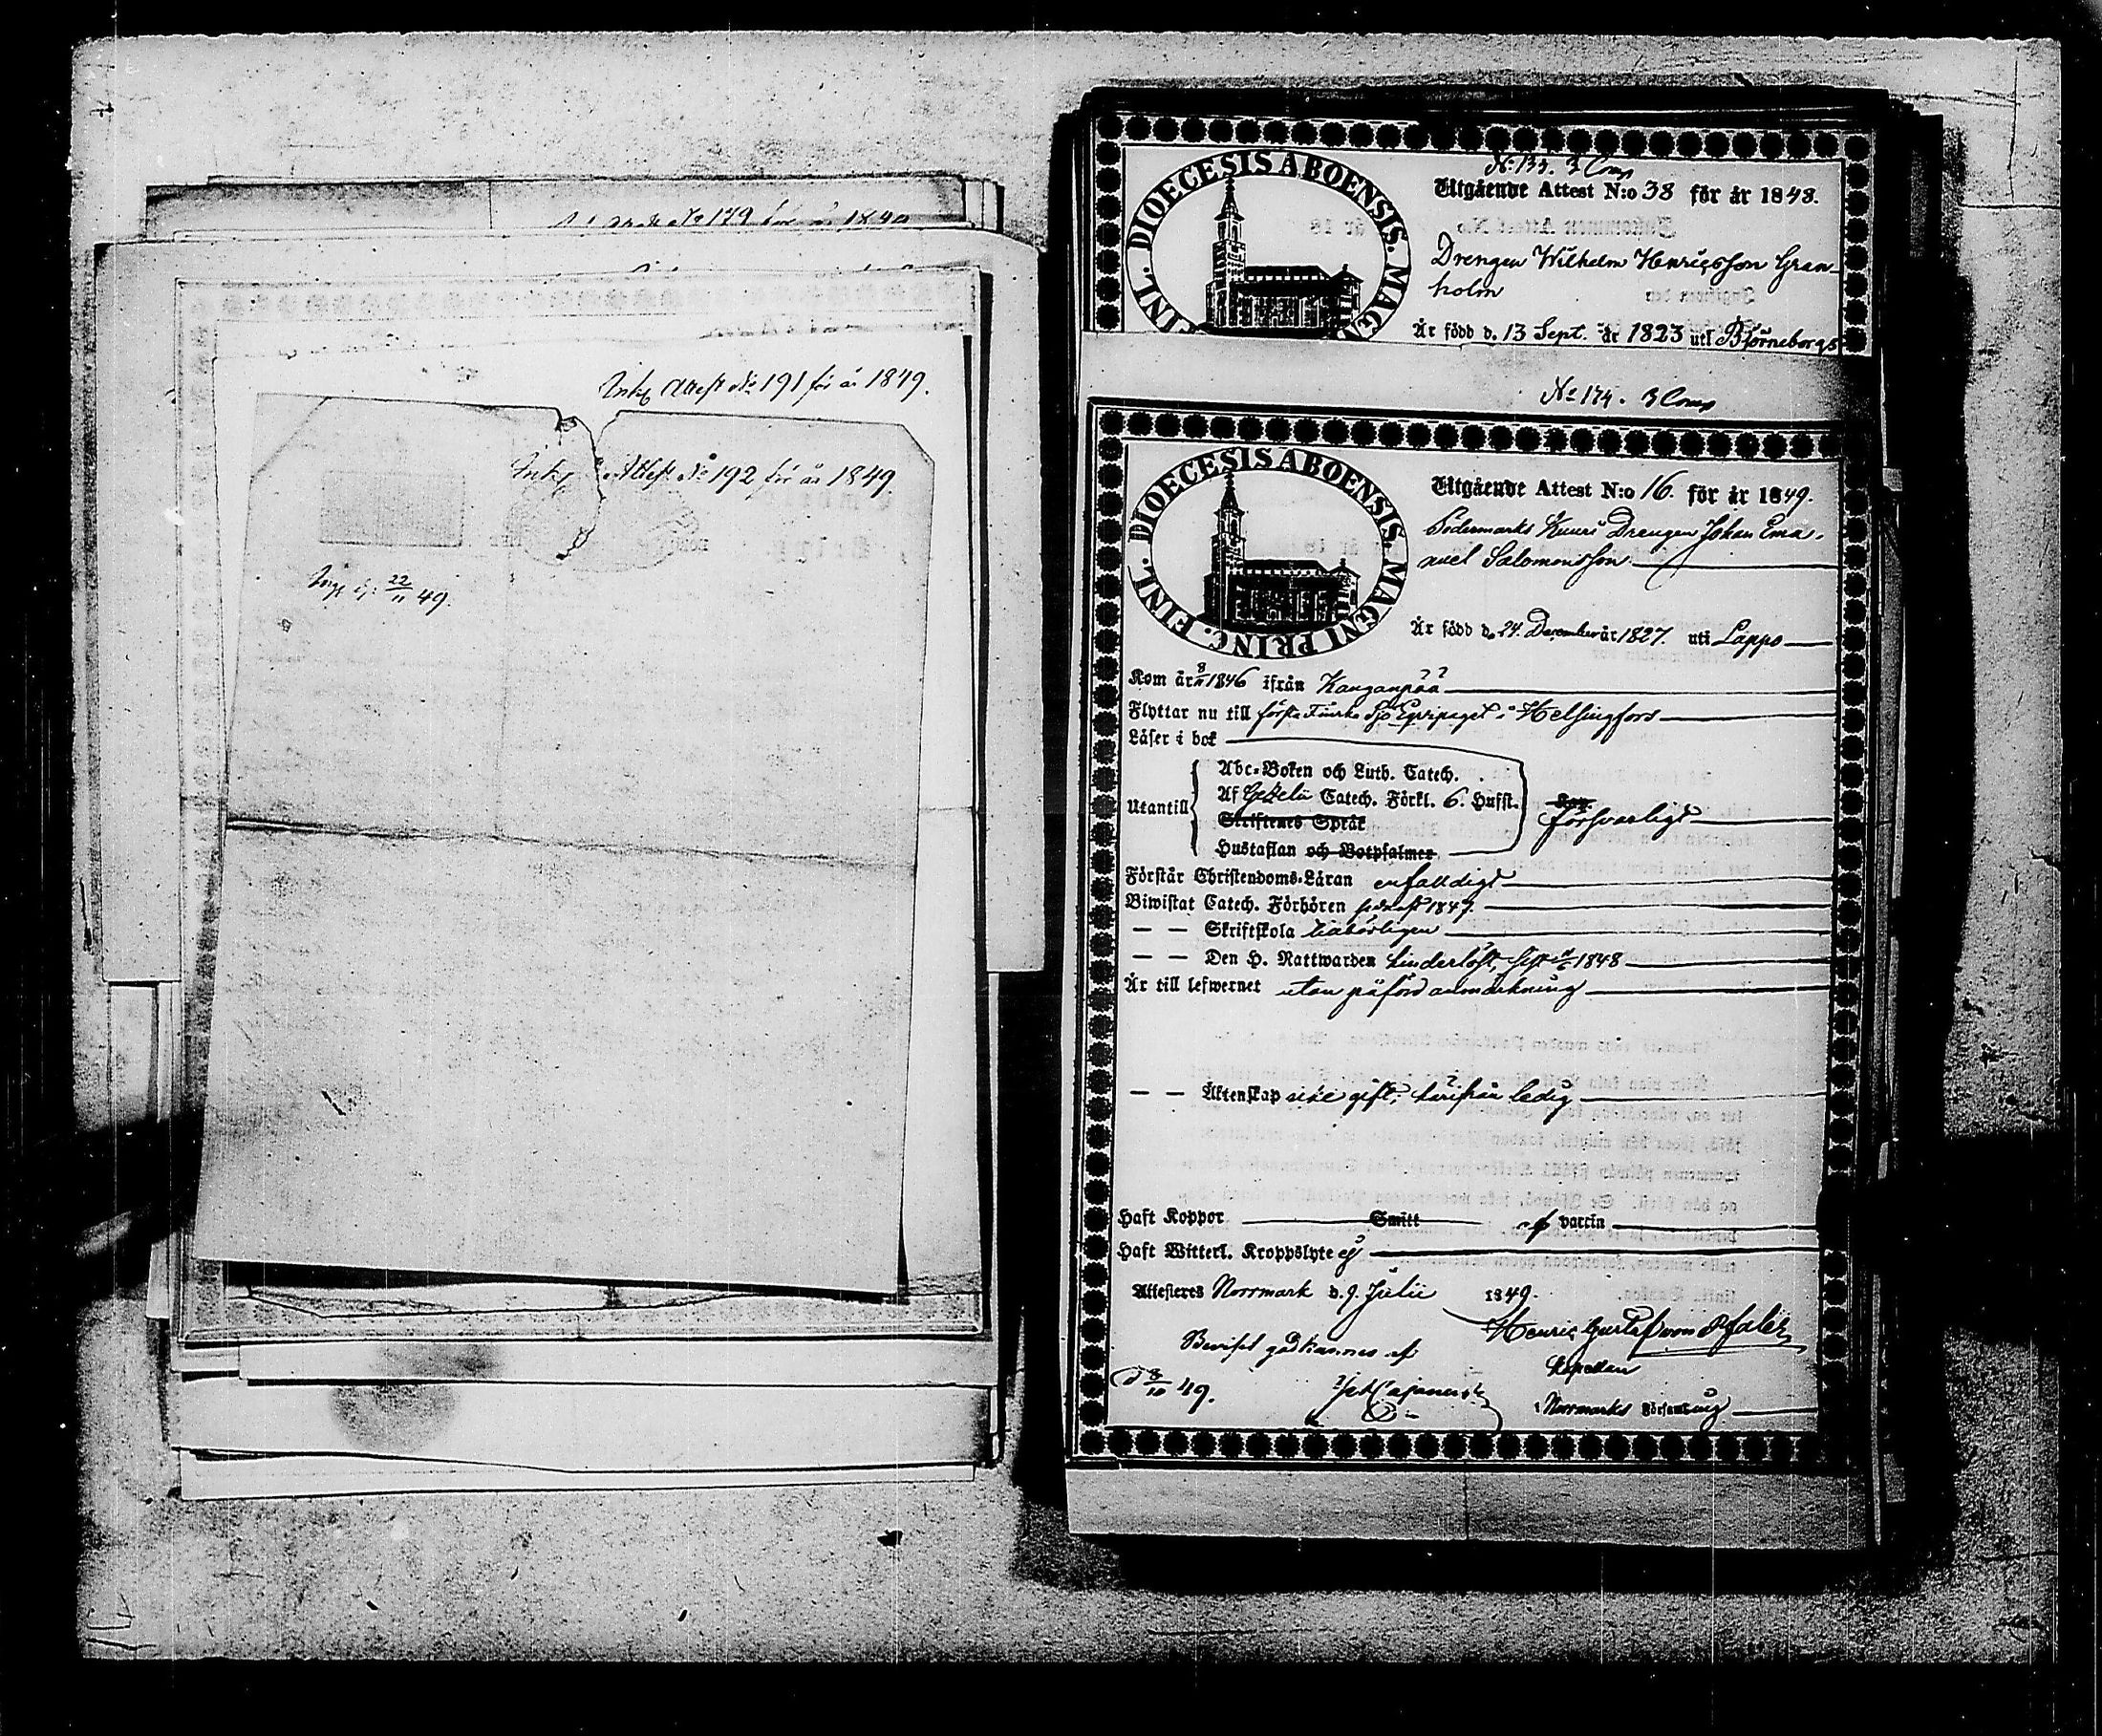 Attest No 179 för år 1849
Ink. Attest No 191 för år 1849.
Ink. Attest No 192 för år 1849.
22/11 49.
No 133. 3 Comp
DIOECESIS ABOENSIS. MAGNI PRINC. FINL.
Utgående Attest N:o 38 för år 1848.
Drengen Wilhelm Henricsson Gran-
holm
Är född d. 13 Sept. år 1823 uti Björneborgs
No 134. 3 Comp
DIOECESIS ABOENSIS. MAGNI PRINC. FINL.
Utgående Attest N:o 16. för år 1849.
Södermarks Kuuri Drengen Johan Ema-
nuel Salomonsson.
Är född d. 24. December år 1827. uti Lappo
Kom år 8/11 1846 ifrån Kanganpää
Flyttar nu till första Finska Sjö Eqvipaget i Helsingfors
Läser i bok
Utantill
Abc-Boken och Luth. Catech.
Af Gezelii Catech. Förkl. 6. Hufst.
Skriftenes Språk
Hustaflan och Botpsalmer
försvarligt
Förstår Christendoms-Läran enfaldigt
Biwistat Catech. Förhören sednast 1847.
— — Skriftskola behörigen
— — Den H. Nattwarden hinderlöst, sist 1848
Är till lefwernet utan påförd anmärkning
— — Äktenskap icke gift, härifrån ledig
Haft Koppor Smitt af vaccin
Haft Witterl. Kroppslyte ej
Attesteras Norrmark d. 9. Julii 1849.
Henric Gustaf von Pfaler
Beviset godkännes af
Kapellan
d 3/10 49.
i Norrmarks Församling